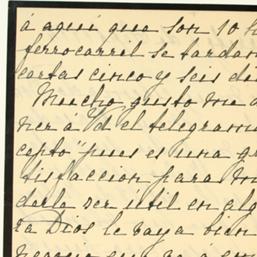 á aquí que son 10 h
ferrocarril se tardan
cartas cinco y seis dí
Mucho gusto me a
ner á d el telegrama
cepto" pues es una gr
tisfaccion para m
darla ser útil en alg
ra Dios le vaya bien